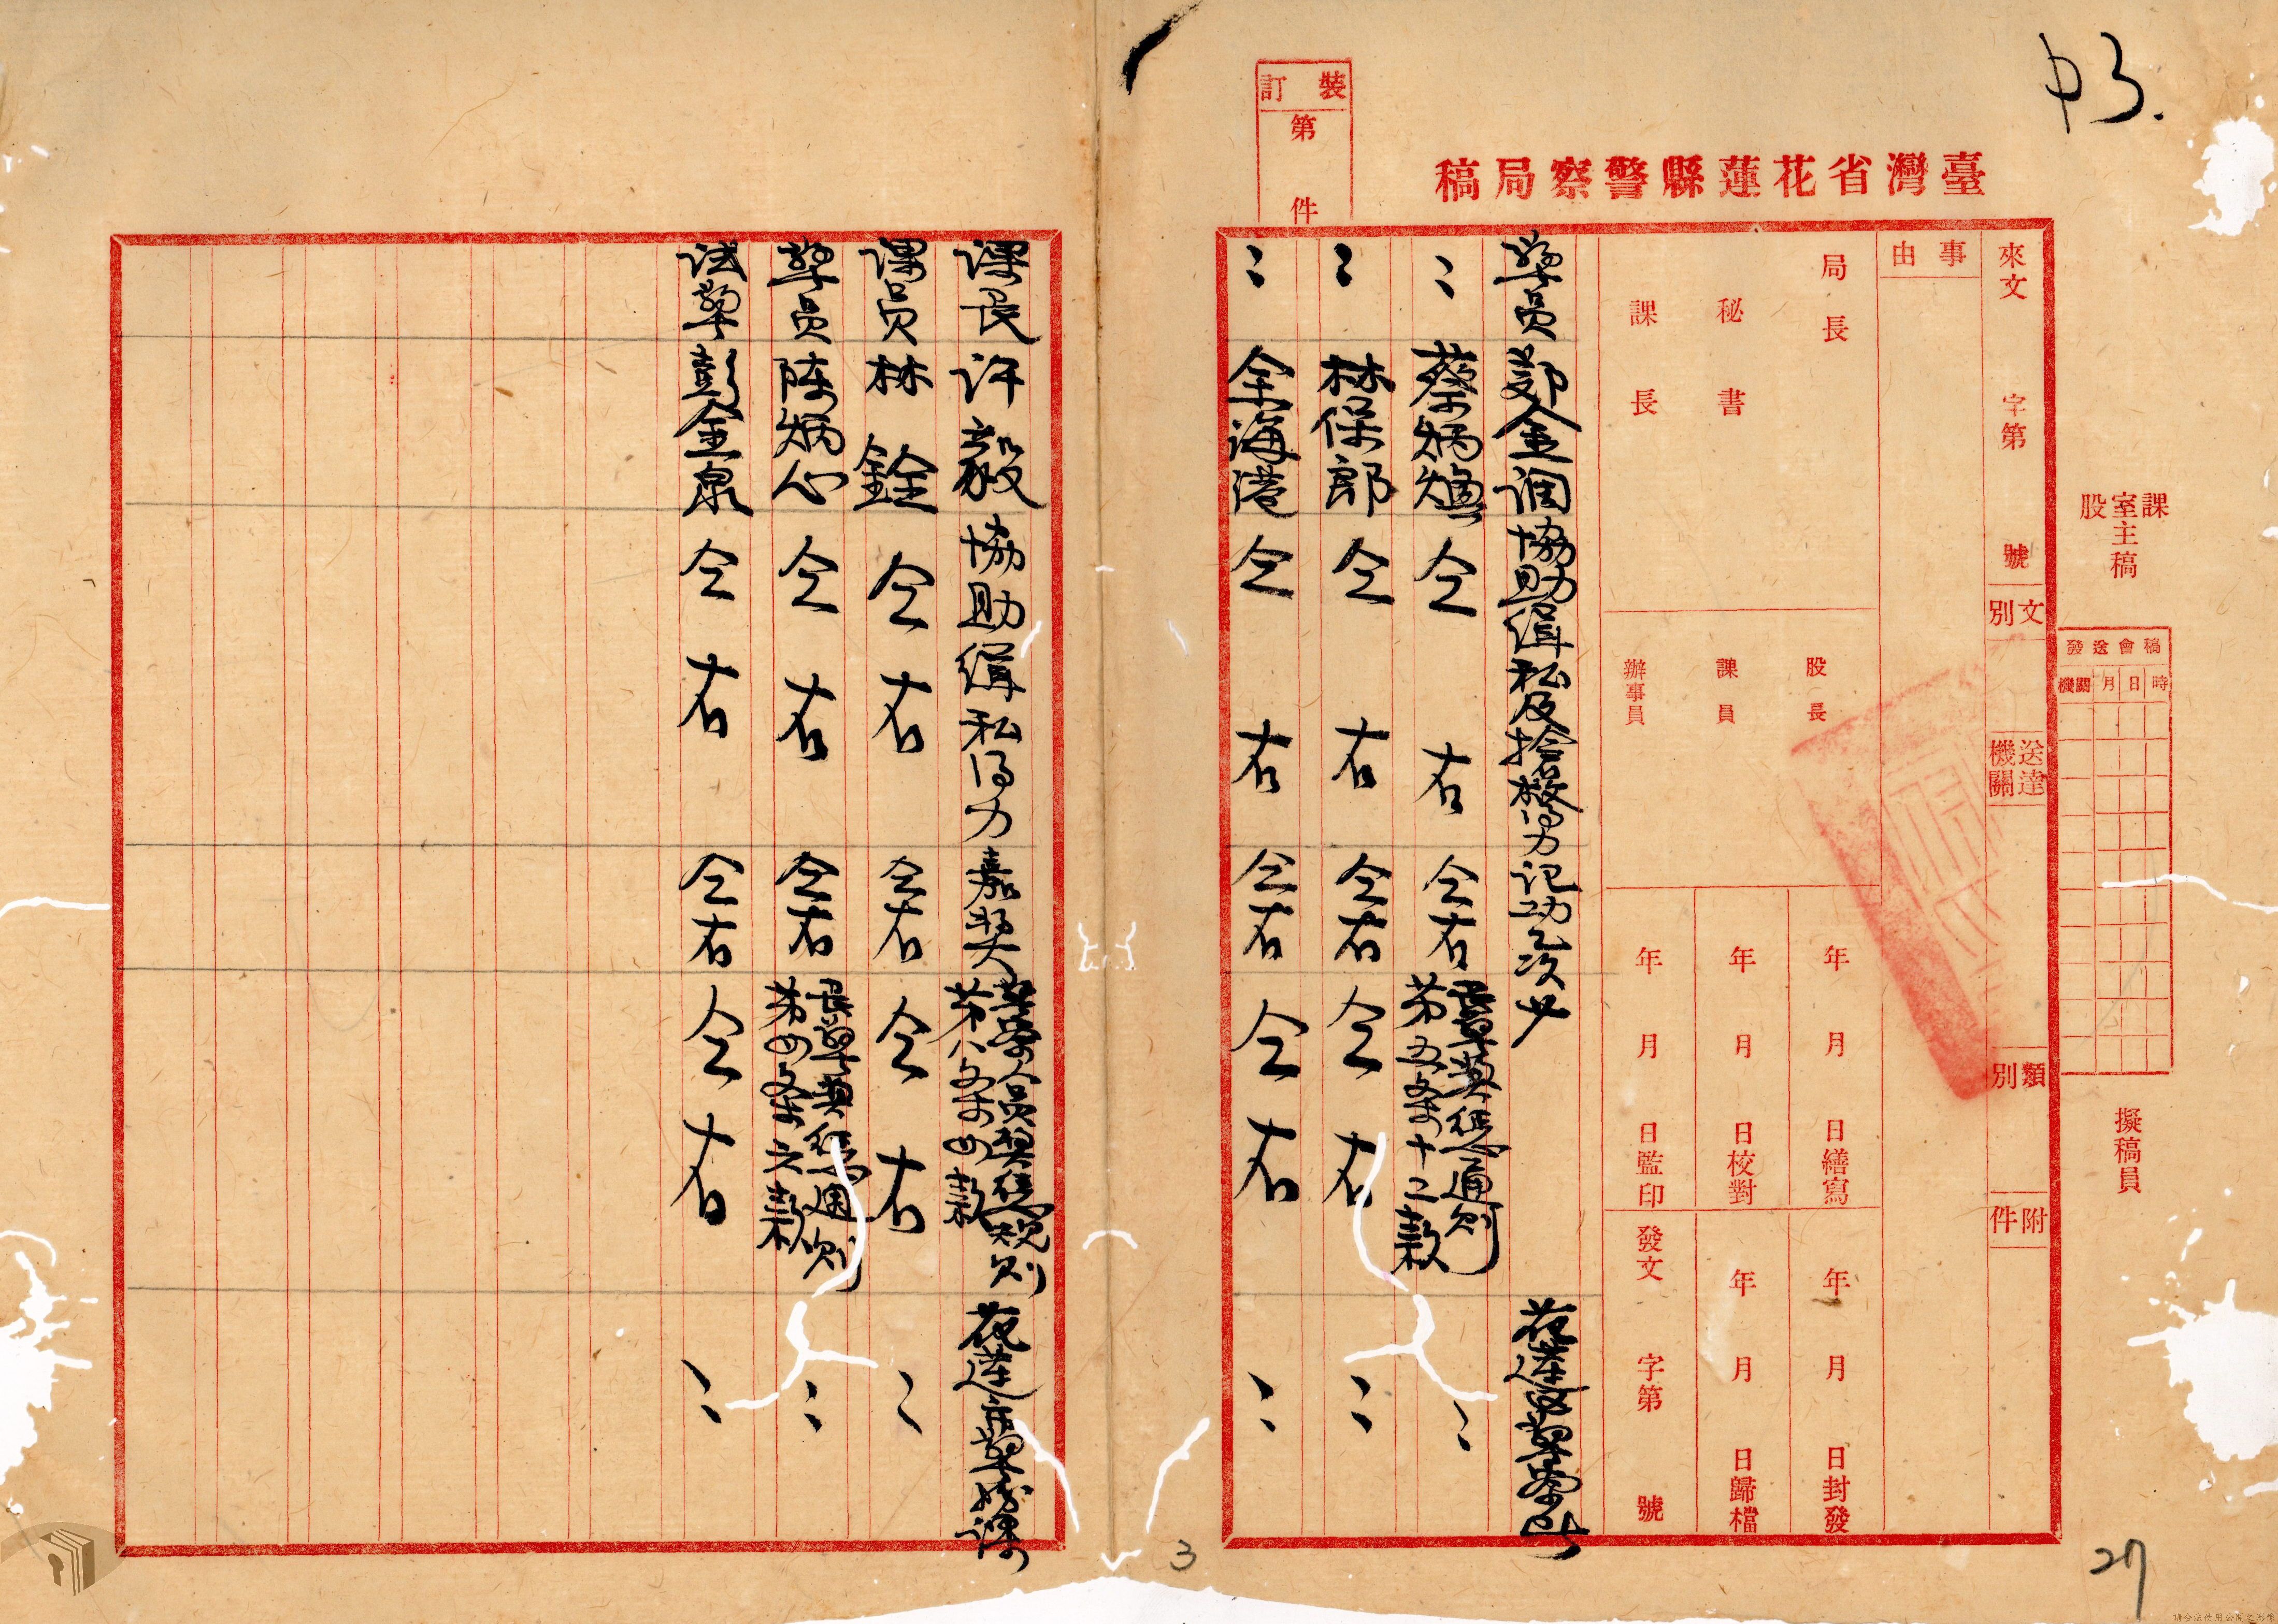 中3.
臺灣省花蓮縣警察局稿
裝訂
第 件
課室股主稿
擬稿員
稿會送發
時日月機關
來文 字第 號
文別
送達機關
類別
附件
事由
局長
秘書
課長
股長
課員
辦事員
年 月 日繕寫
年 月 日校對
年 月 日監印
年 月 日封發
年 月 日歸檔
發文 字第 號
警員 鄭金润 協助緝私及搶救得力 记功乙次
〻 蔡炳𤋮 仝右 仝右 長警獎惩通則第五条十二款 〻
〻 林保郎 仝右 仝右 仝右 〻
〻 余海港 仝右 仝右 仝右 〻
课長 许毅 協助緝私得力 嘉奖 警察人員奬惩規则第八条四款 花蓮市警務课
课員 林銓 仝右 仝右 仝右 〻
警員 陈炳心 仝右 仝右 長警奬懲通则第四条六款 〻
试警 彭金泉 仝右 仝右 仝右 〻
3
27
請合法使用公開之影像